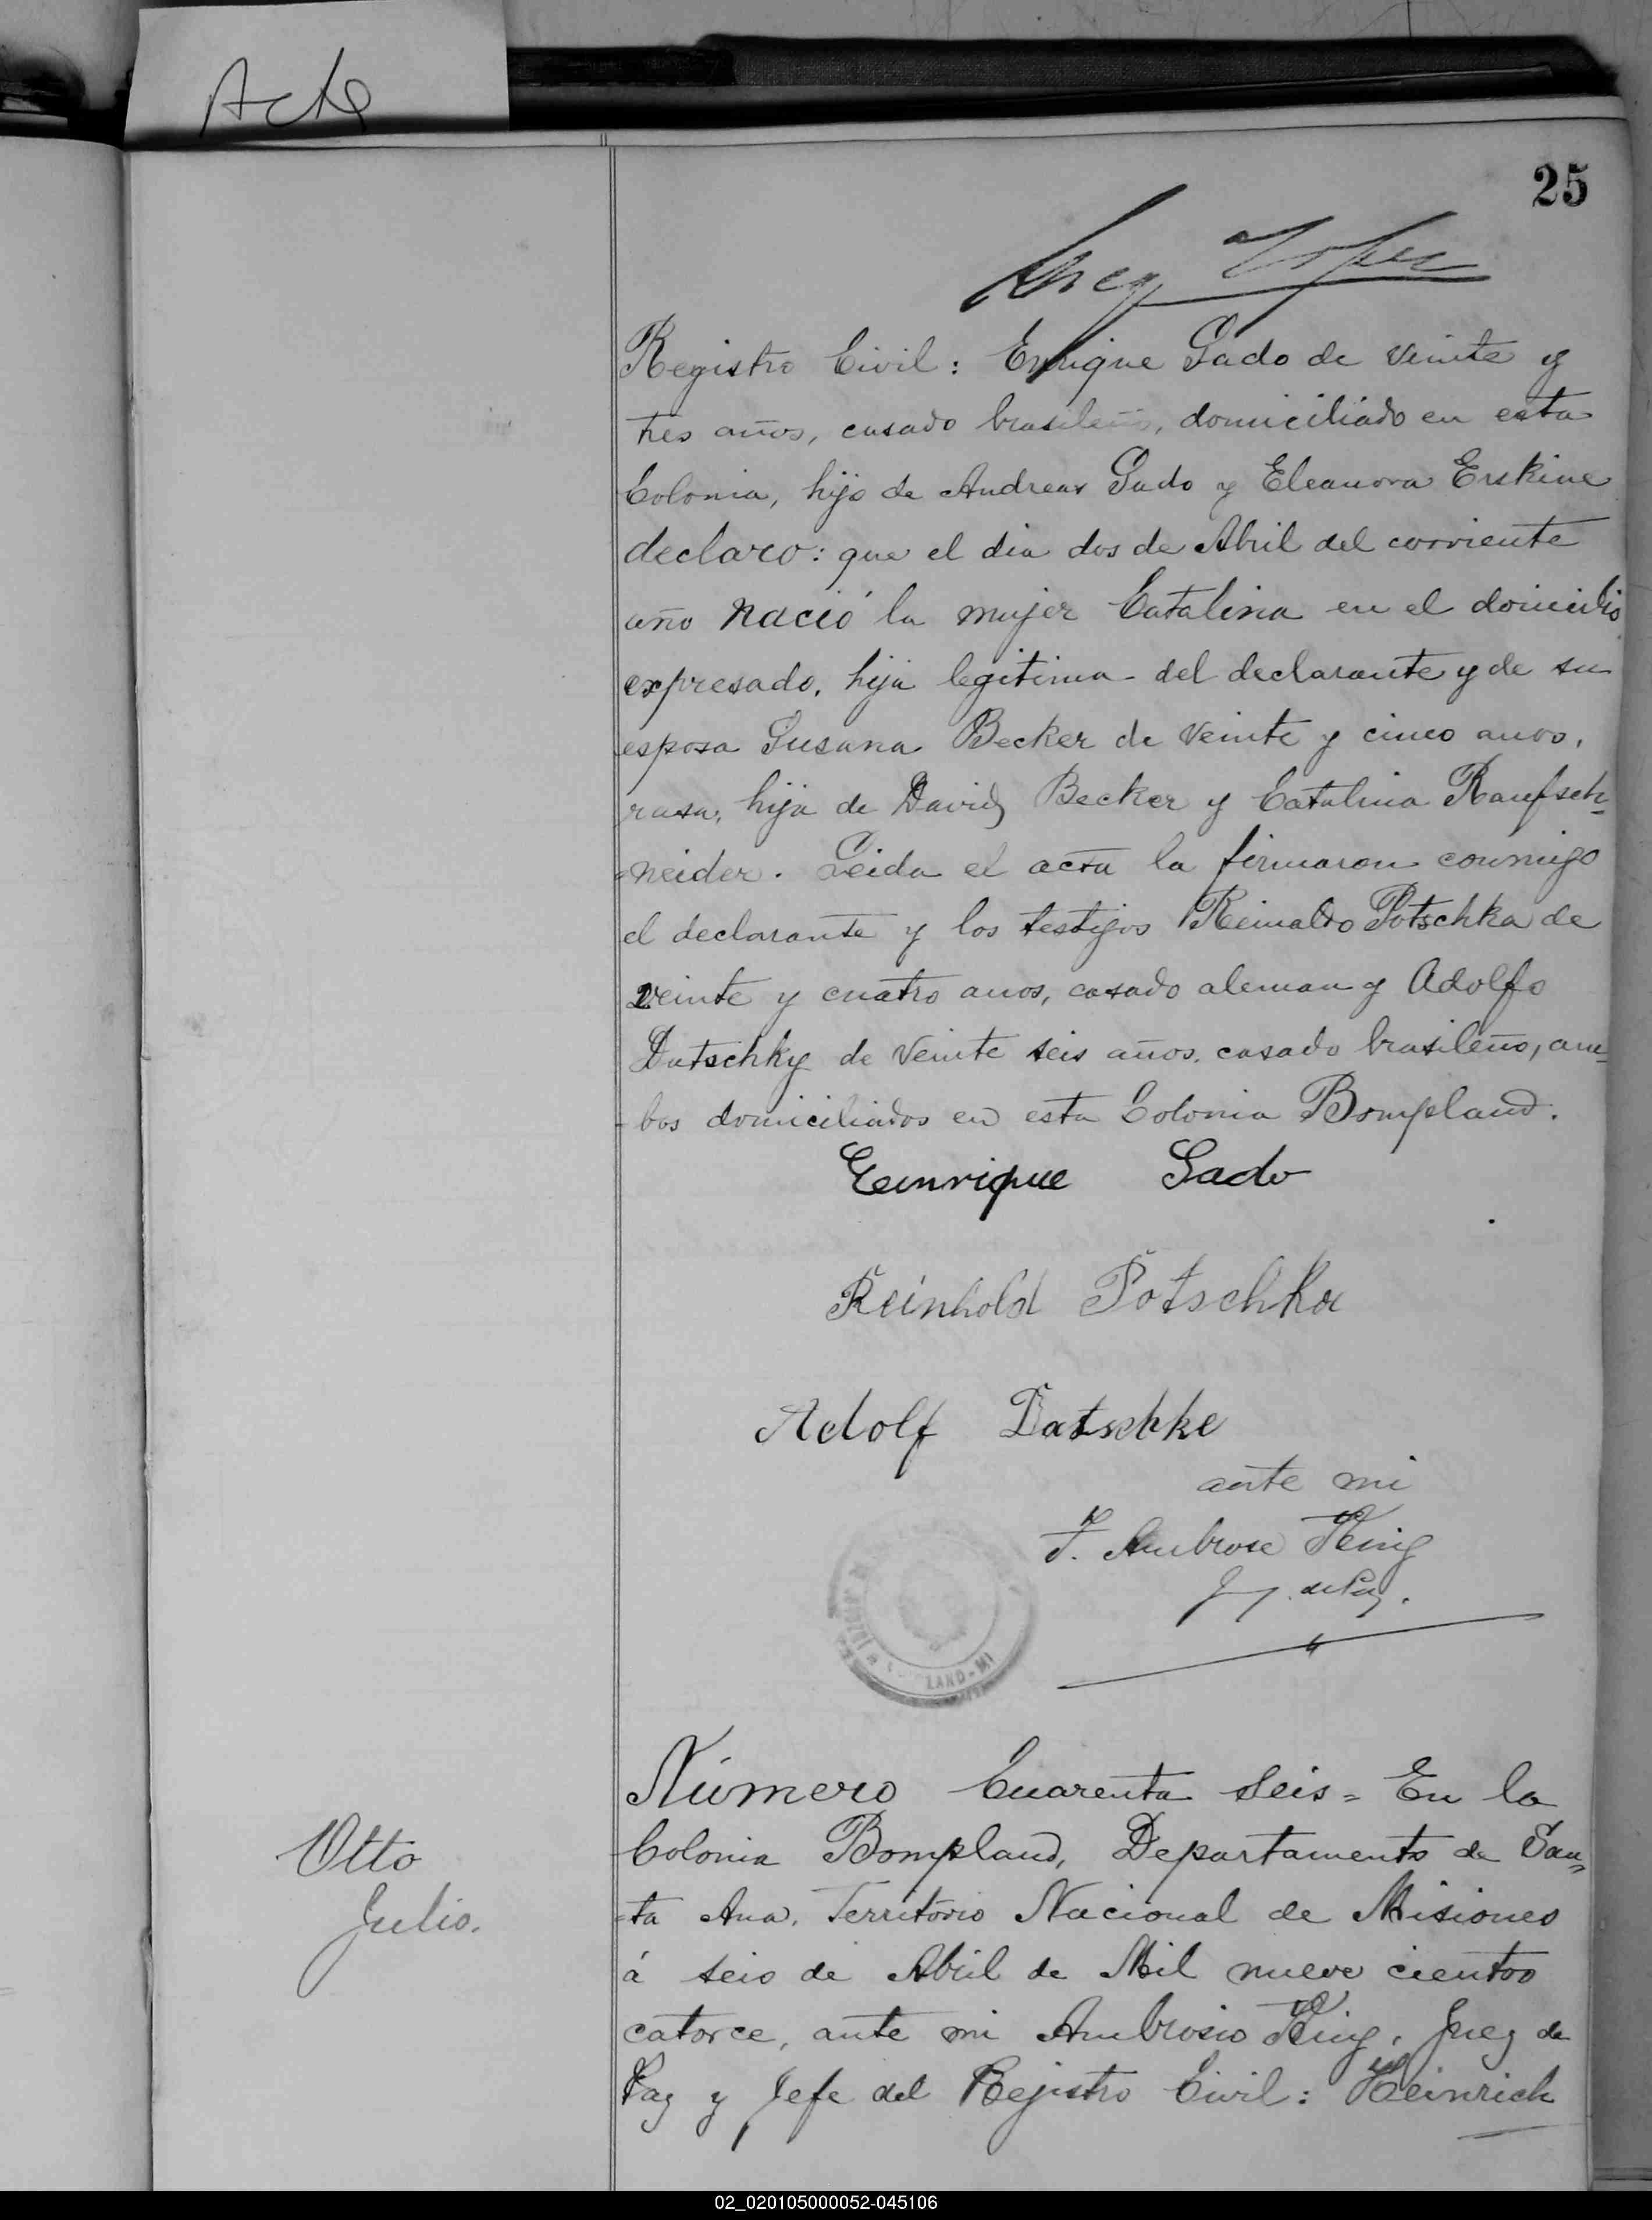 Acta
25
Registro Civil: Enrique Sado de veinte y
tres años, casado brasileño, domiciliado en esta
Colonia, hijo de Andreas Sado y Eleanora Erskine
declaro: que el dia dos de Abril del corriente
año nació la mujer Catalina en el domicilio
expresado, hija legitima del declarante y de su
esposa Susana Becker de veinte y cinco anos,
rusa, hija de David Becker y Catalina Raufsch-
-neider. Leida el acta la firmaron conmigo
el declarante y los testigos Reinaldo Potschka de
veinte y cuatro anos, casado aleman y Adolfo
Datschky de veinte seis años, casado brasileño, am-
-bos domiciliados en esta Colonia Bompland.
Sado
Reinhold Potschka
Adolf Datschke
ante mi
J. Ambrose King
LAND-MI
Número Cuarenta seis = En la
Colonia Bompland, Departamento de San-
-ta Ana, Territorio Nacional de Misiones
á seis de Abril de Mil nueve cientos
catorce, ante mi Ambrosio King, Juez de
Paz y Jefe del Rejistro Civil: Heinrich
Otto
Julio.
02_020105000052-045106